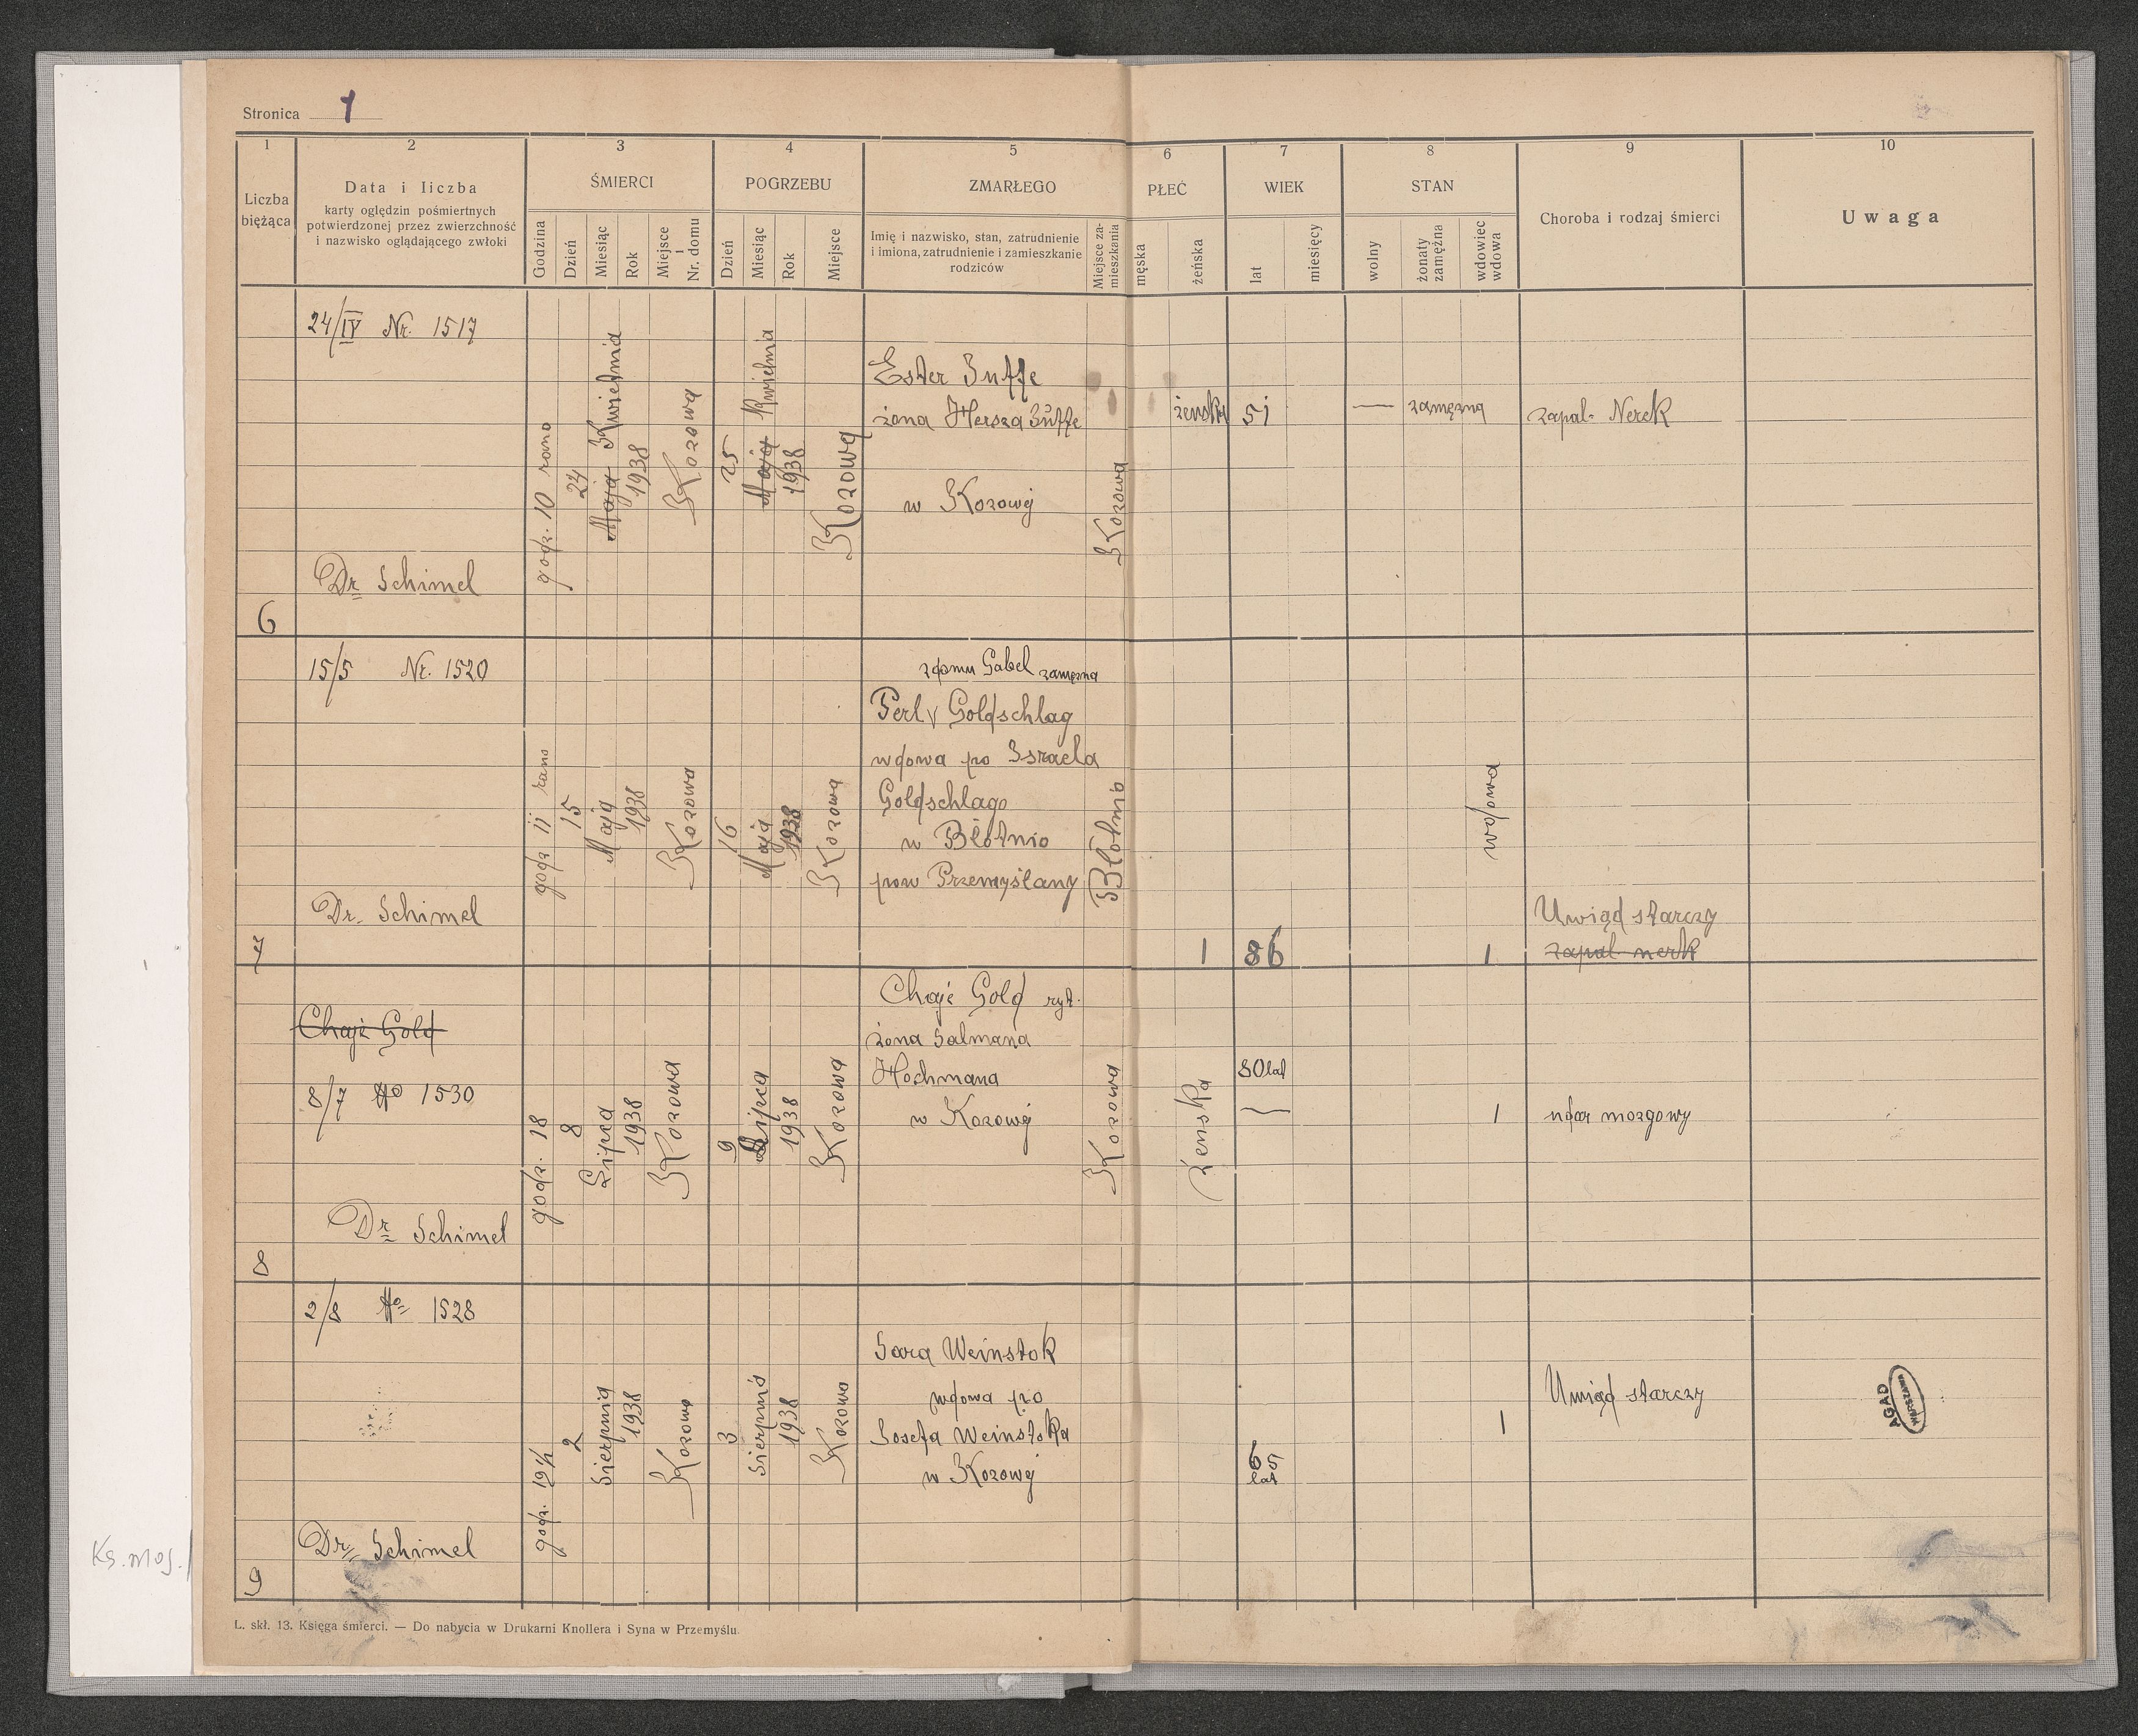 Stronica 1
1 2 3 4 5 6 7 8 9 10
Liczba bieżąca
Data i liczba
karty oględzin pośmiertnych
potwierdzonej przez zwierzchność
i nazwisko oglądającego zwłoki
ŚMIERCI
Godzina
Dzień
Miesiąc
Rok
Miejsce i Nr. domu
POGRZEBU
Dzień
Miesiąc
Rok
Miejsce
ZMARŁEGO
Imię i nazwisko, stan, zatrudnienie
i imiona, zatrudnienie i zamieszkanie
rodziców
Miejsce za-
mieszkania
PŁEĆ
męska
żeńska
WIEK
lat
miesięcy
STAN
wolny
żonaty
zamężna
wdowiec
wdowa
Choroba i rodzaj śmierci
Uwaga
24/IV Nr. 1517
Dr Schimel
6
godz. 10 rano
24
Maja Kwietnia
1938
Kozowa
25
Maja Kwietnia
1938
Kozowa
Ester
żona Hersza
w Kozowej
Kozowa
żenska
51
— zamężna
zapal. Nerek
15/5 Nr. 1520
Dr. Schimel
7
godz 11 rano
15
Maja
1938
Kozowa
16
Maja
1938
Kozowa
zdomu Gabel zamężna
Perl v Goldschlag
wdowa po Israela
Goldschlaga
w Błotnio
pow Przemyślany
Błotnio
1
86
wdowa
1
Uwiąd starczy
zapal nerk
Chaje Gold
8/7 No 1530
Dr Schimel
8
godz. 18
8
Lipca
1938
Kozowa
9
Lipca
1938
Kozowa
Chaje Gold ryt.
żona Salmana
Hochmana
w Kozowej
Kozowa
Żenska
80 lat
—
1
udar mozgowy
2/8 No 1528
Dr Schimel
9
godz. 19½
2
Sierpnia
1938
Kozowa
3
Sierpnia
1938
Kozowa
Sara Weinstok
wdowa po
Josefa Weinstoka
w Kozowej
65
lat
1
Uwiąd starczy
AGAD
WARSZAWA
Ks. moj.
L. skł. 13. Księga śmierci. — Do nabycia w Drukarni Knollera i Syna w Przemyślu.